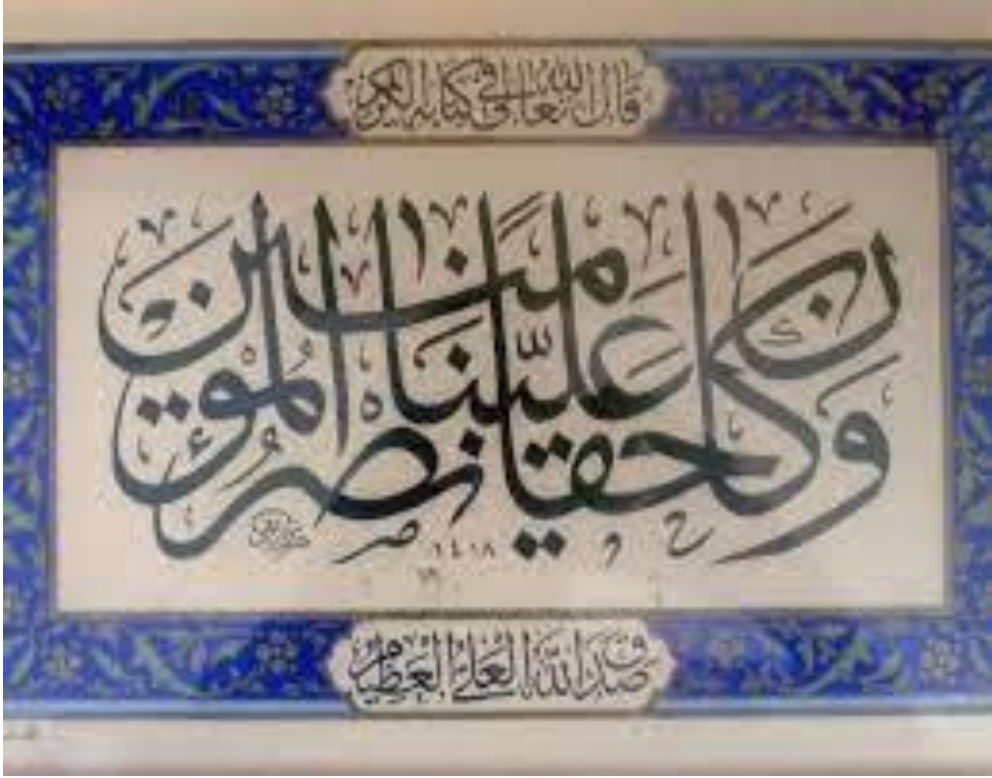 قال الله تعالى في كتابه الكريم
وكان حقا علينا نصر المؤمنين
١٤١٨
صدق الله العلي العظيم